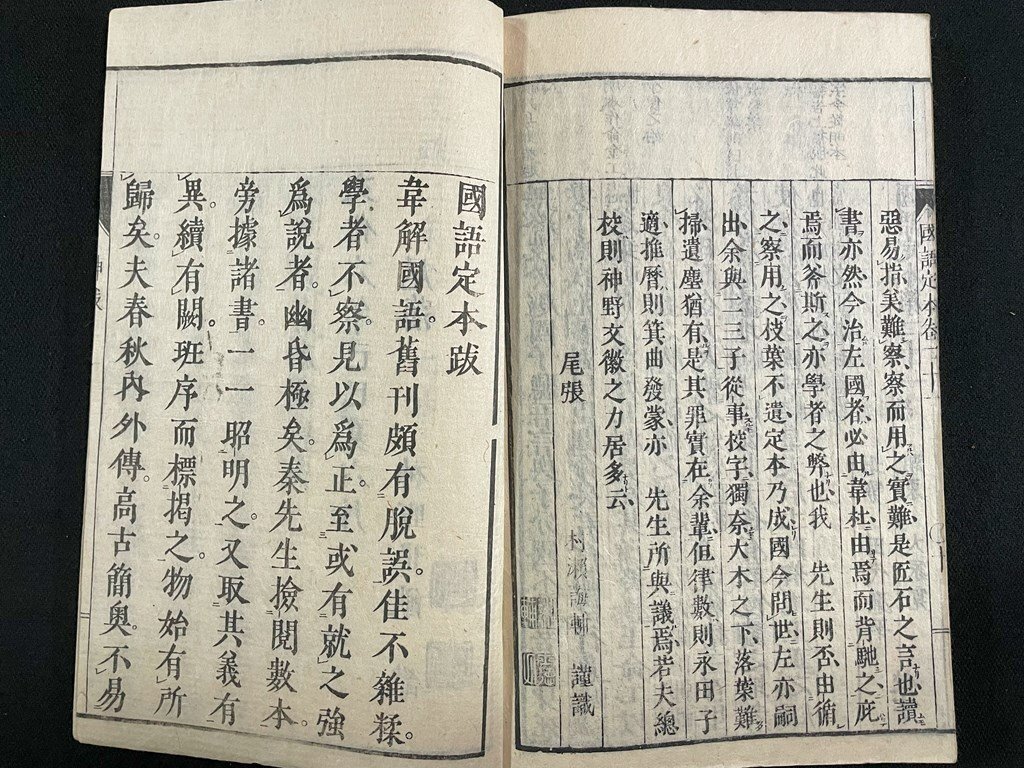 國語定本卷二十一
惡易指美難察察而用之實難是匠石之言也讀
書亦然今治左國者必由韋杜由焉而背馳之庇
焉而斧斯之亦學者之弊也我 先生則否由循
之察用之枝葉不遺定本乃成國今問世左亦嗣
出余與二三子從事校字獨奈大木之下落葉難
掃遺塵猶有是其罪實在余輩但律數則永田子
適推曆則箕曲發蒙亦 先生所與議焉若夫總
校則神野文徽之力居多云
尾張 村瀨誨輔 謹識
國語定本跋
韋解國語舊刊頗有脫誤佳不雜糅
學者不察見以爲正至或有就之強
爲說者幽昏極矣秦先生撿閱數本
旁據諸書一一昭明之又取其義有
異續有闕班序而標揭之物始有所
歸矣夫春秋內外傳高古簡奧不易